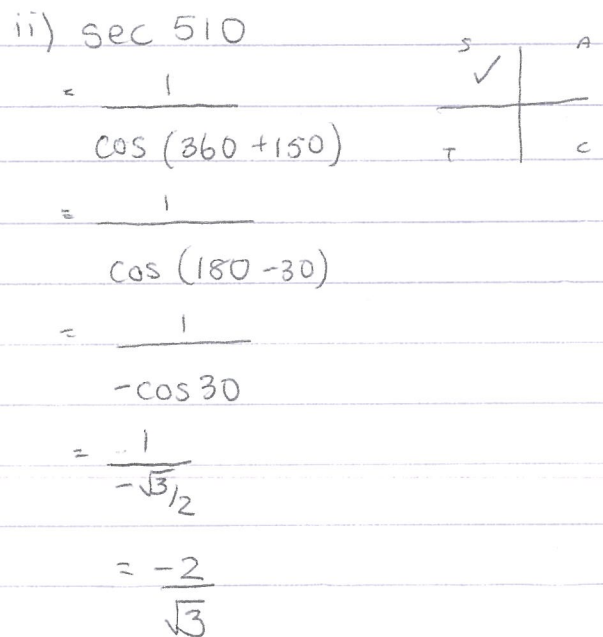 ii) sec 510
S A
✓
= 1
cos (360 + 150)
T C
= 1
cos (180 - 30)
= 1
- cos 30
= 1
-√3/2
= -2
√3